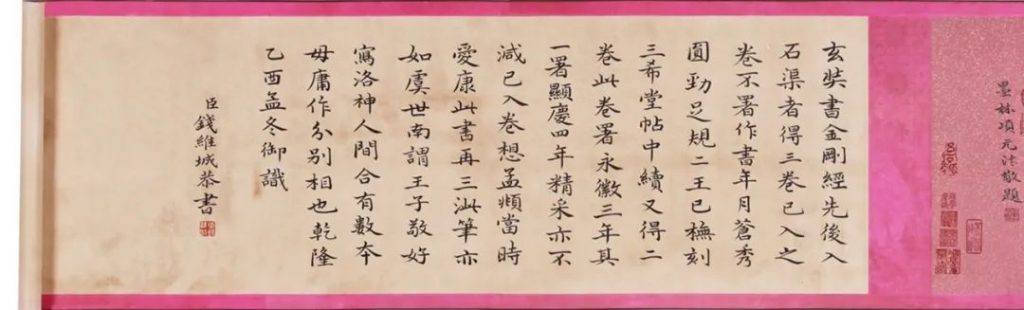 墨林項元汴敬題
玄奘書金剛經先後入
石渠者得三卷已入之
卷不署作書年月蒼秀
圓勁足規二王已橅刻
三希堂帖中續又得二
卷此卷署永徽三年其
一署顯慶四年精采亦不
減已入卷想孟頫當時
愛康此書再三泚筆亦
如虞世南謂王子敬好
寫洛神人間合有數本
毋庸作分別相也乾隆
乙酉孟冬御識
臣錢維城恭書